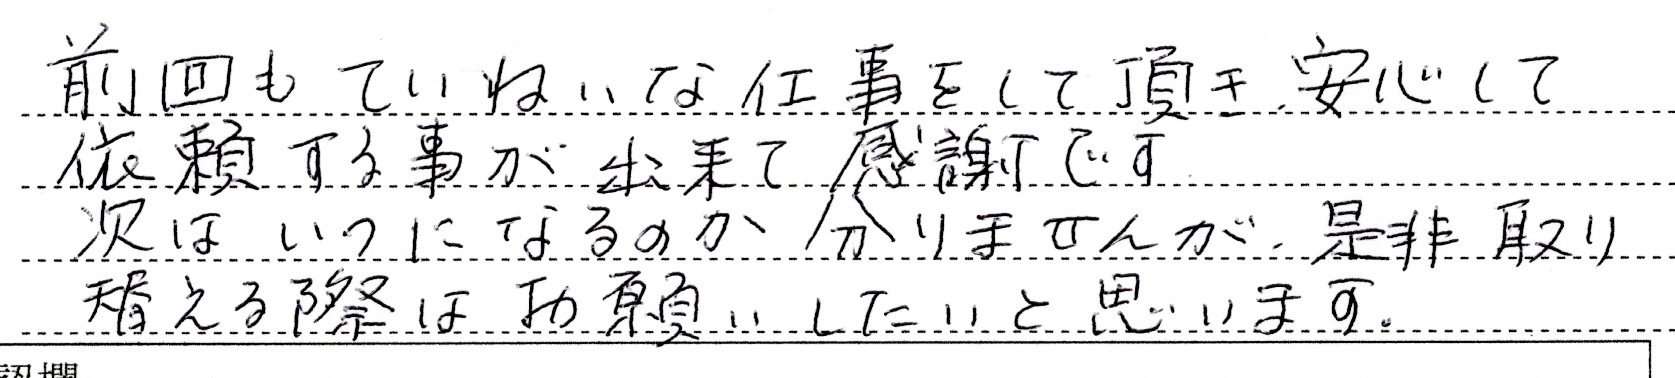 前回もていねいな仕事をして頂き、安心して
依頼する事が出来て感謝です
次はいつになるのか分りませんが、是非取り
替える際はお願いしたいと思います。
認欄